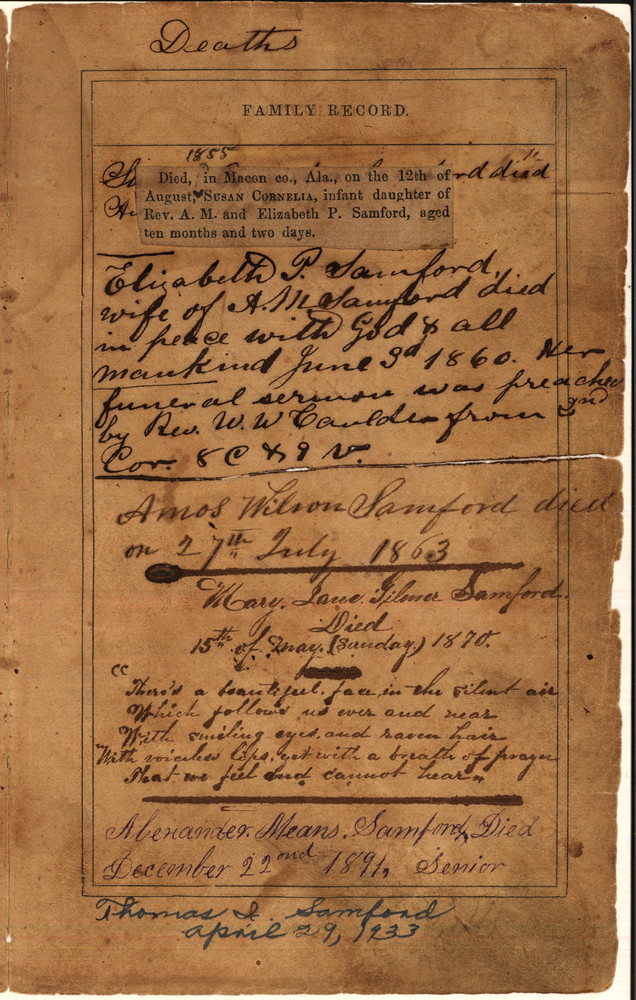 Deaths
FAMILY RECORD.
1855
rd died
Died, in Macon co., Ala., on the 12th of
August, SUSAN CORNELIA, infant daughter of
Rev. A. M. and Elizabeth P. Samford, aged
ten months and two days.
Elizabeth P. Samford,
wife of A. M. Samford died
in peace with God & all
mankind June 3d 1860. Her
funeral sermon was preached
by Rev. W. W. from 2nd
Cor. 8 C & 9 V.
Amos Wilson Samford died
on 27th July 1863
Mary. Jane. Gilmer Samford.
Died
15th of May. (Sunday.) 1870.
"There's a beautiful face in the silent air
Which follows us ever and near
With smiling eyes and raven hair
With voiceless lips, yet with a breath of prayer
That we feel and cannot hear"
Alexander. Means. Samford, Died
December 22nd 1891, Senior
Thomas I. Samford
April 29, 1933